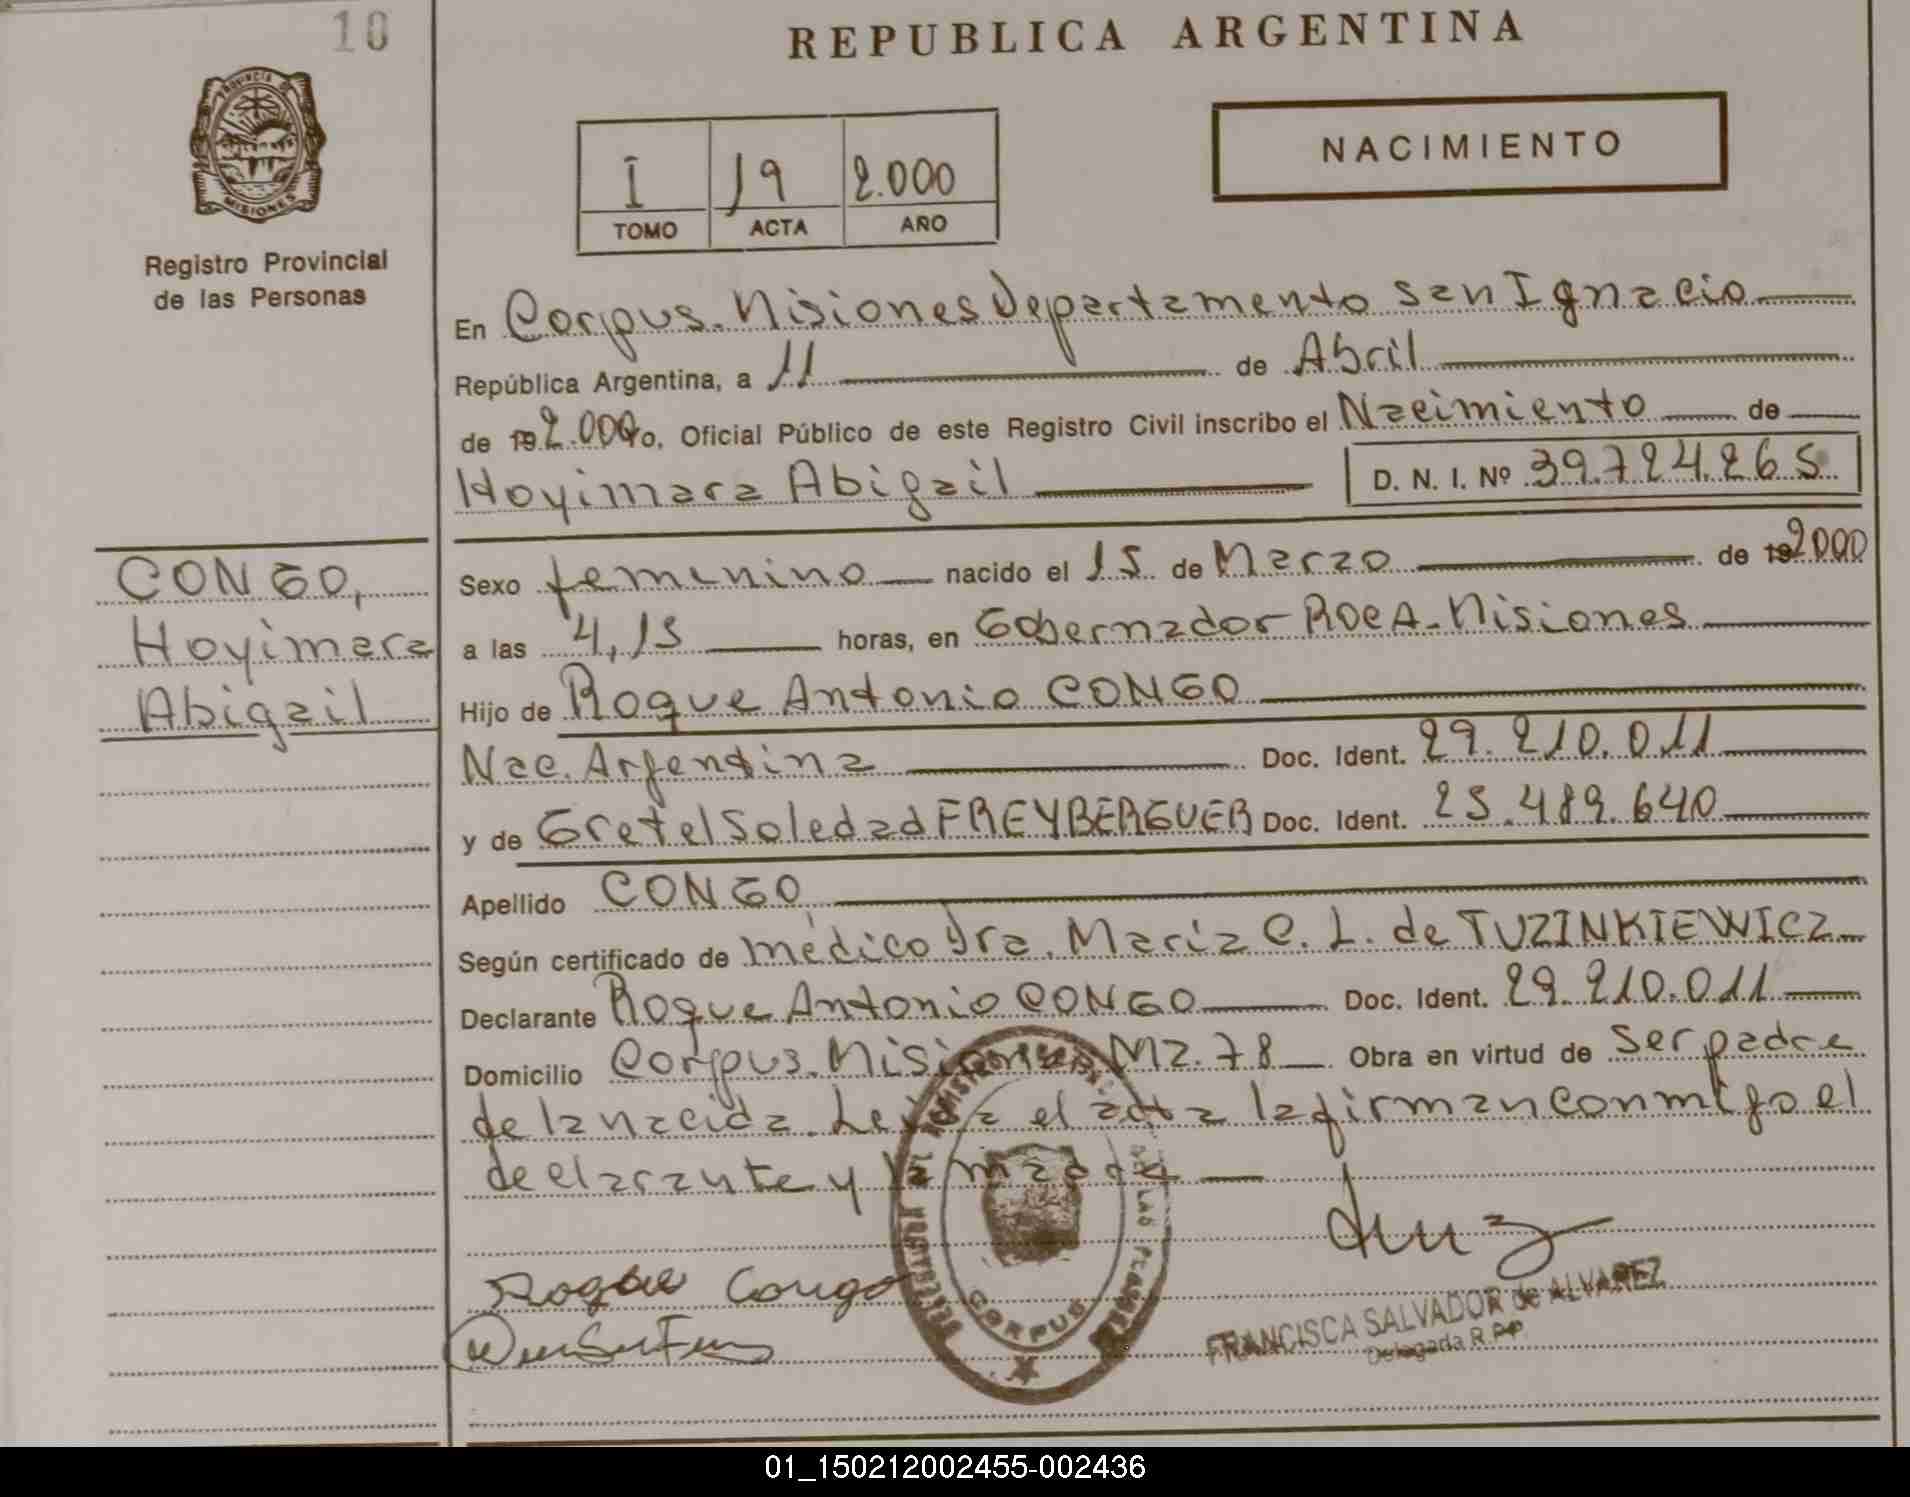 10
REPUBLICA ARGENTINA
PROVINCIA DE
MISIONES
Registro Provincial
de las Personas
I 19 2.000
TOMO ACTA AÑO
NACIMIENTO
En Corpus. Misiones Departamento San Ignacio
República Argentina, a 11 de Abril
de 19 2.000 o, Oficial Público de este Registro Civil inscribo el Nacimiento de
Hoyimara Abigail D. N. I. Nº 39.724.265
CONGO,
Hoyimara
Abigail
Sexo femenino nacido el 15 de Marzo de 19 2000
a las 4,15 horas, en Gobernador ROCA. Misiones
Hijo de Roque Antonio CONGO
Nac. Argentina Doc. Ident. 29.210.011
y de Gretel Soledad FREYBERGUER Doc. Ident. 25.489.640
Apellido CONGO
Según certificado de médico Dra. Maria C. L. de TUZINKIEWICZ
Declarante Roque Antonio CONGO Doc. Ident. 29.210.011
Domicilio Corpus. Misiones MZ. 78 Obra en virtud de ser padre
de la nacida. Leida el acta la firman conmigo el
declarante y la madre
Roque Congo
CORPUS
FRANCISCA SALVADOR de ALVAREZ
Delegada R.P.P.
01_150212002455-002436